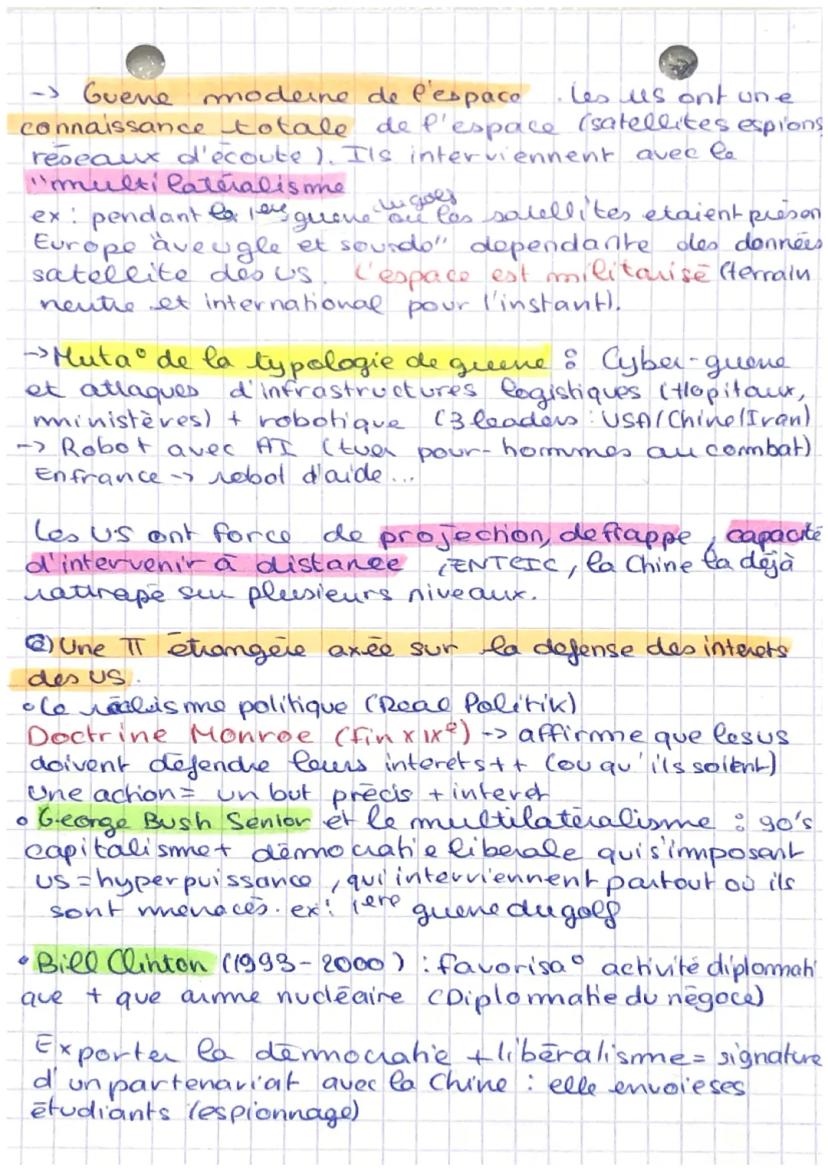 -> Guerre moderne de l'espace. Les US ont une
connaissance totale de l'espace (satellites espions
réseaux d'écoute). Ils interviennent avec le
"multilatéralisme
ex : pendant la 1ere guerre du golf où les satellites etaient présen
Europe "aveugle et sourde" dependante des données
satellite des US. L'espace est militarisé (terrain
neutre et international pour l'instant).
-> Muta° de la typologie de guerre : Cyber-guerre
et attaques d'infrastructures logistiques (Hopitaux,
ministères) + robotique (3 leaders : USA/Chine/Iran)
-> Robot avec AI (tuer pour-hommes au combat)
En france -> robot d'aide...
Les US ont force de projection, de frappe, capacité
d'intervenir à distance, ENTEIC, la Chine la déjà
rattrapé sur plusieurs niveaux.
2) Une π étrangère axée sur la defense des interets
des US.
• Le réalisme politique (Real Politik)
Doctrine Monroe (fin XIXe) -> affirme que les US
doivent défendre leurs interets ++ (ou qu'ils soient)
Une action = un but précis + interet
• George Bush Senior et le multilatéralisme : 90's
capitalisme + démocratie liberale qui s'imposent
US = hyperpuissance, qui interviennent partout où ils
sont menacés. ex : 1ere guerre du golf
• Bill Clinton (1993-2000) : favorisa° activité diplomati
que + que arme nucléaire (Diplomatie du négoce)
Exporter la démocratie + libéralisme = signature
d'un partenariat avec la Chine : elle envoie ses
étudiants (espionnage)